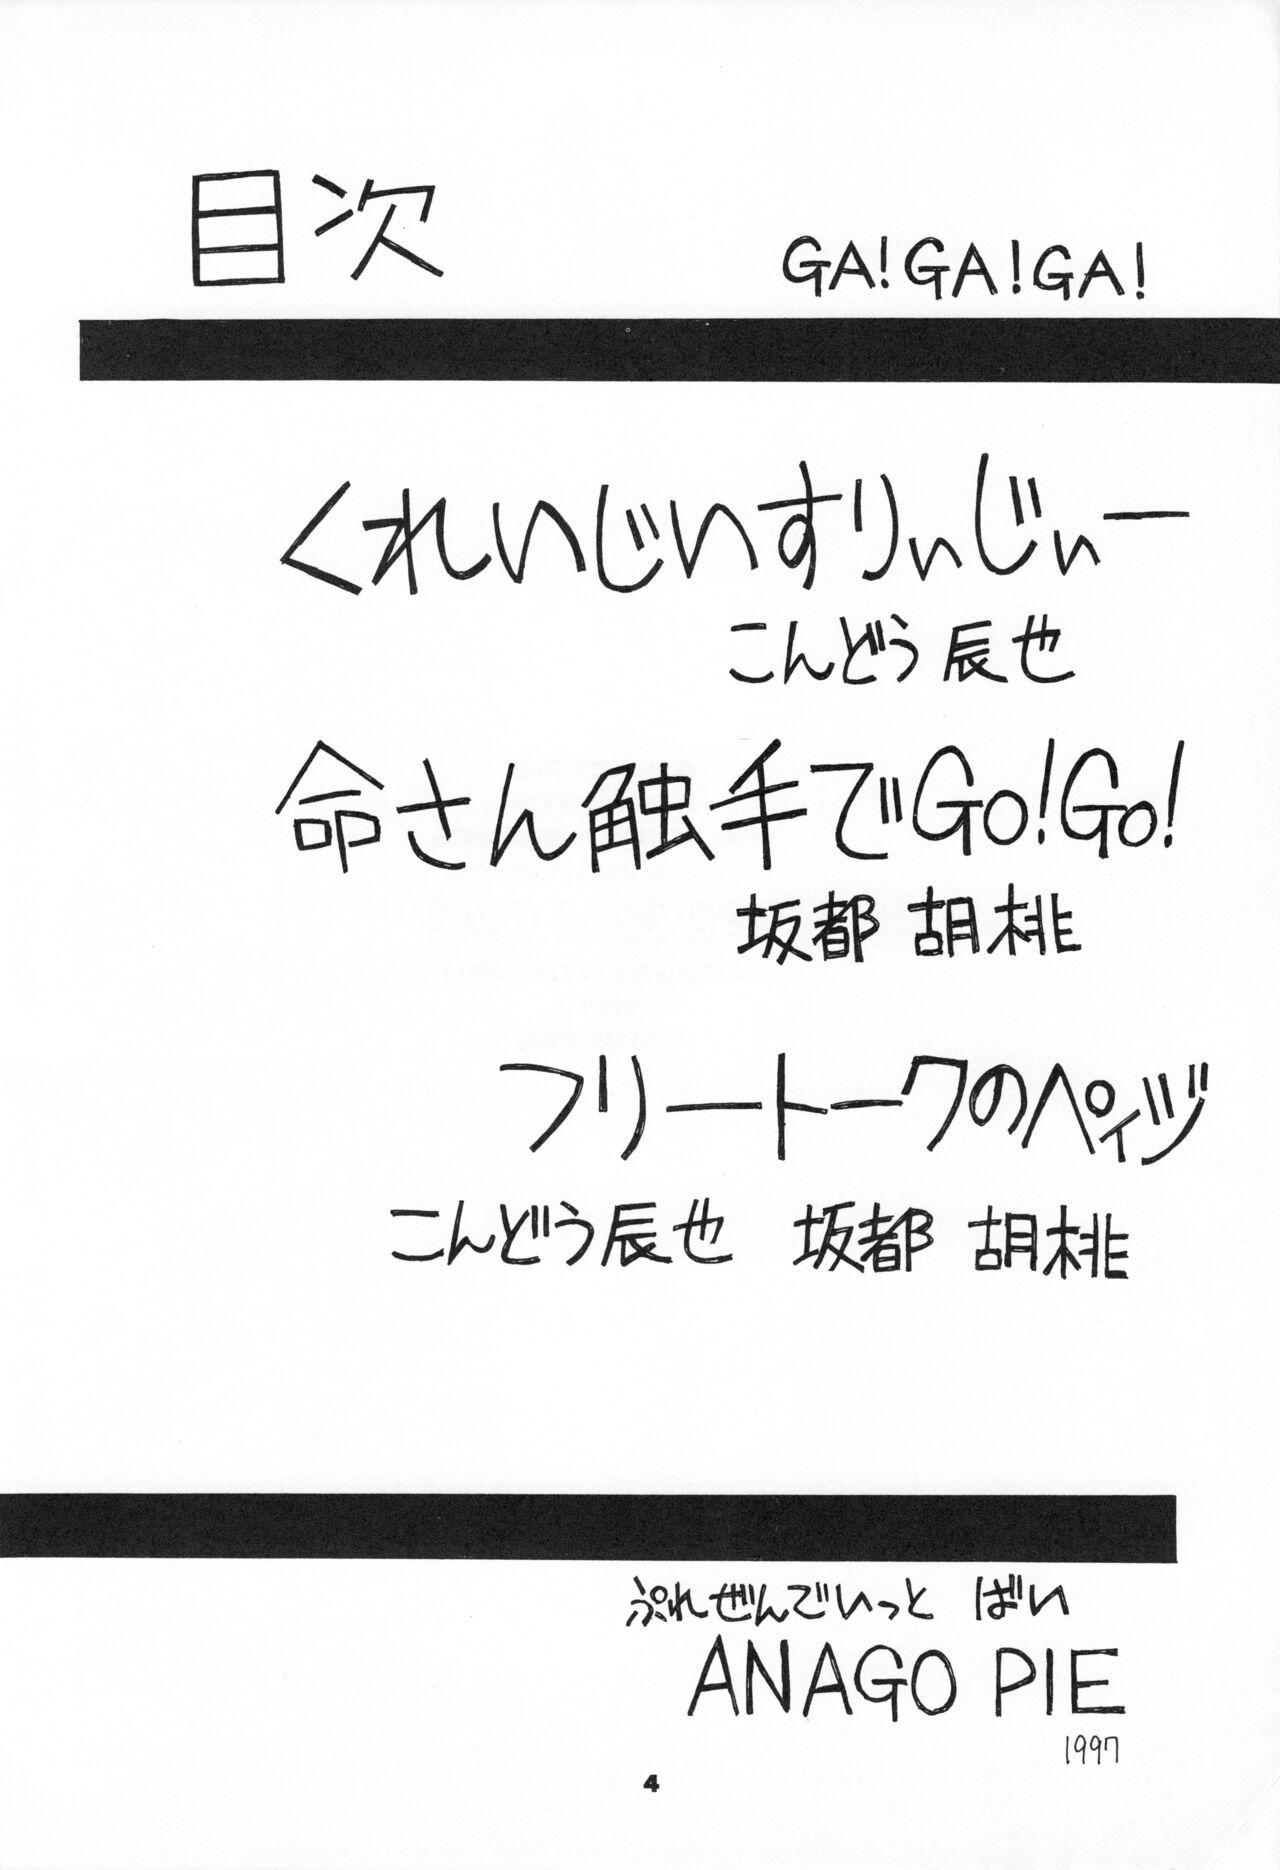 目次
GA!GA!GA!
くれいじいすりぃじぃー
こんどう辰也
命さん触手でGO!GO!
坂都 胡桃
フリートークのペィヅ
こんどう辰也 坂都 胡桃
ぷれぜんでいっと ばい
ANAGO PIE
1997
4